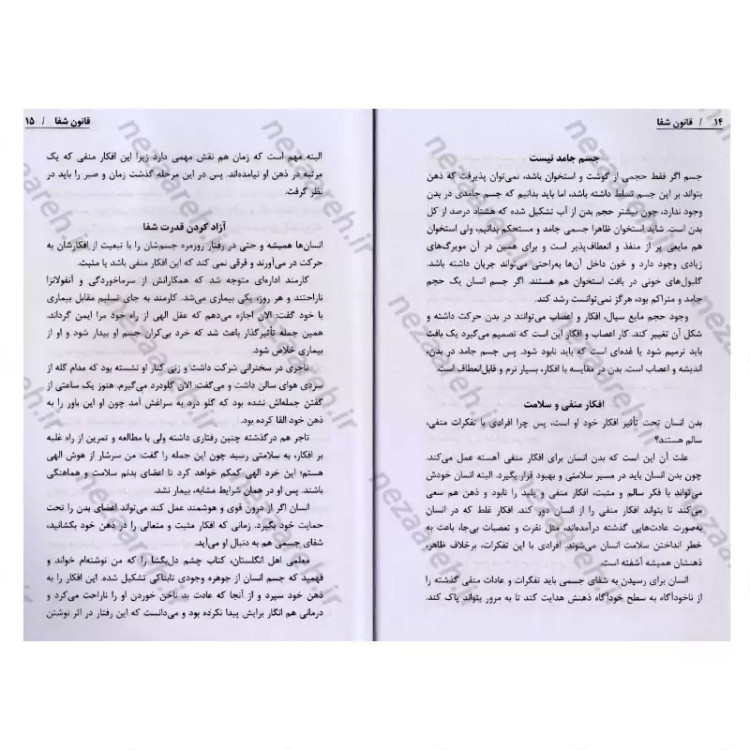 ۱۴ / قانون شفا
جسم جامد نیست
جسم اگر فقط حجمی از گوشت و استخوان باشد، نمی‌توان پذیرفت که ذهن
بتواند بر این جسم تسلط داشته باشد، اما باید بدانیم که جسم جامدی در بدن
وجود ندارد، چون بیشتر حجم بدن از آب تشکیل شده که هشتاد درصد از کل
بدن است. شاید استخوان ظاهرا جسمی جامد و مستحکم بدانیم، ولی استخوان
هم مایعی پر از منفذ و انعطاف‌پذیر است و برای همین در آن مویرگ‌های
زیادی وجود دارد و خون داخل آن‌ها به‌راحتی می‌تواند جریان داشته باشد.
گلبول‌های خونی در بافت استخوان هم هستند. اگر جسم انسان یک حجم
جامد و متراکم بود، هرگز نمی‌توانست رشد کند.
وجود حجم مایع سیال، افکار و اعصاب می‌توانند در بدن حرکت داشته و
شکل آن تغییر کند. کار اعصاب و افکار این است که تصمیم می‌گیرد یک بافت
باید ترمیم شود یا غده‌ای است که باید نابود شود. پس جسم جامد در بدن،
اندیشه و اعصاب است. بدن در مقایسه با افکار، بسیار نرم و قابل‌انعطاف است.
افکار منفی و سلامت
بدن انسان تحت تأثیر افکار خود او است، پس چرا افرادی با تفکرات منفی،
سالم هستند؟
علت آن این است که بدن انسان برای افکار منفی آهسته عمل می‌کند.
چون بدن انسان باید در مسیر سلامتی و بهبود قرار بگیرد. البته انسان خودش
می‌تواند با فکر سالم و مثبت، افکار منفی و پلید را نابود و ذهن هم سعی
می‌کند تا بتواند افکار منفی را از انسان دور کند. افکار غلط که در انسان
به‌صورت عادت‌هایی گذشته درآمده‌اند، مثل نفرت و تعصبات بی‌جا، باعث به
خطر انداختن سلامت انسان می‌شوند. افرادی با این تفکرات، برخلاف ظاهر،
ذهنشان همیشه آشفته است.
انسان برای رسیدن به شفای جسمی باید تفکرات و عادات منفی گذشته را
از ناخودآگاه به سطح خودآگاه ذهنش هدایت کند تا به مرور بتواند پاک کند.
قانون شفا / ۱۵
البته مهم است که زمان هم نقش مهمی دارد زیرا این افکار منفی که یک
مرتبه در ذهن او نیامده‌اند. پس در این مرحله گذشت زمان و صبر را باید در
نظر گرفت.
آزاد کردن قدرت شفا
انسان‌ها همیشه و حتی در رفتار روزمره جسم‌شان را با تبعیت از افکارشان به
حرکت در می‌آورند و فرقی نمی کند که این افکار منفی باشد یا مثبت.
کارمند اداره‌ای متوجه شد که همکارانش از سرماخوردگی و آنفولانزا
ناراحتند و هر روز، یکی بیماری می‌شد. کارمند به جای تسلیم مقابل بیماری
با خود گفت: الان اجازه می‌دهم که عقل الهی از راه خود مرا ایمن گرداند.
همین جمله تأثیرگذار باعث شد که خرد بی‌کران جسم او بیدار شود و او از
بیماری خلاص شود.
تاجری در سخنرانی شرکت داشت و زنی کنار او نشسته بود که مدام گله از
سردی هوای سالن داشت و می‌گفت: الان گلودرد می‌گیرم. هنوز یک ساعتی از
گفتن جمله‌اش نشده بود که گلو درد به سراغش آمد چون او این باور را به
ذهن خود القا کرده بود.
تاجر هم درگذشته چنین رفتاری داشته ولی با مطالعه و تمرین از راه غلبه
بر افکار، به سلامتی رسید چون این جمله را گفت: من سرشار از هوش الهی
هستم؛ این خرد الهی کمکم خواهد کرد تا اعضای بدنم سلامت و هماهنگی
باشند. پس او در همان شرایط مشابه، بیمار نشد.
انسان اگر از درون قوی و هوشمند عمل کند می‌تواند اعضای بدن را تحت
حمایت خود بگیرد. زمانی که افکار مثبت و متعالی را در ذهن خود بگشایید،
شفای جسمی هم به دنبال او می‌آید.
معلمی اهل انگلستان، کتاب چشم دل‌بگشا را که من نوشته‌ام خواند و
فهمید که جسم انسان از جوهره وجودی تابناکی تشکیل شده. این افکار را به
ذهن خود سپرد و از آنجا که عادت بد ناخن خوردن او را ناراحت می‌کرد و
درمانی هم انگار برایش پیدا نکرده بود و می‌دانست که این رفتار در اثر نوشتن
nezaareh.ir
nezaareh.ir
nezaareh.ir
nezaareh.ir
nezaareh.ir
nezaareh.ir